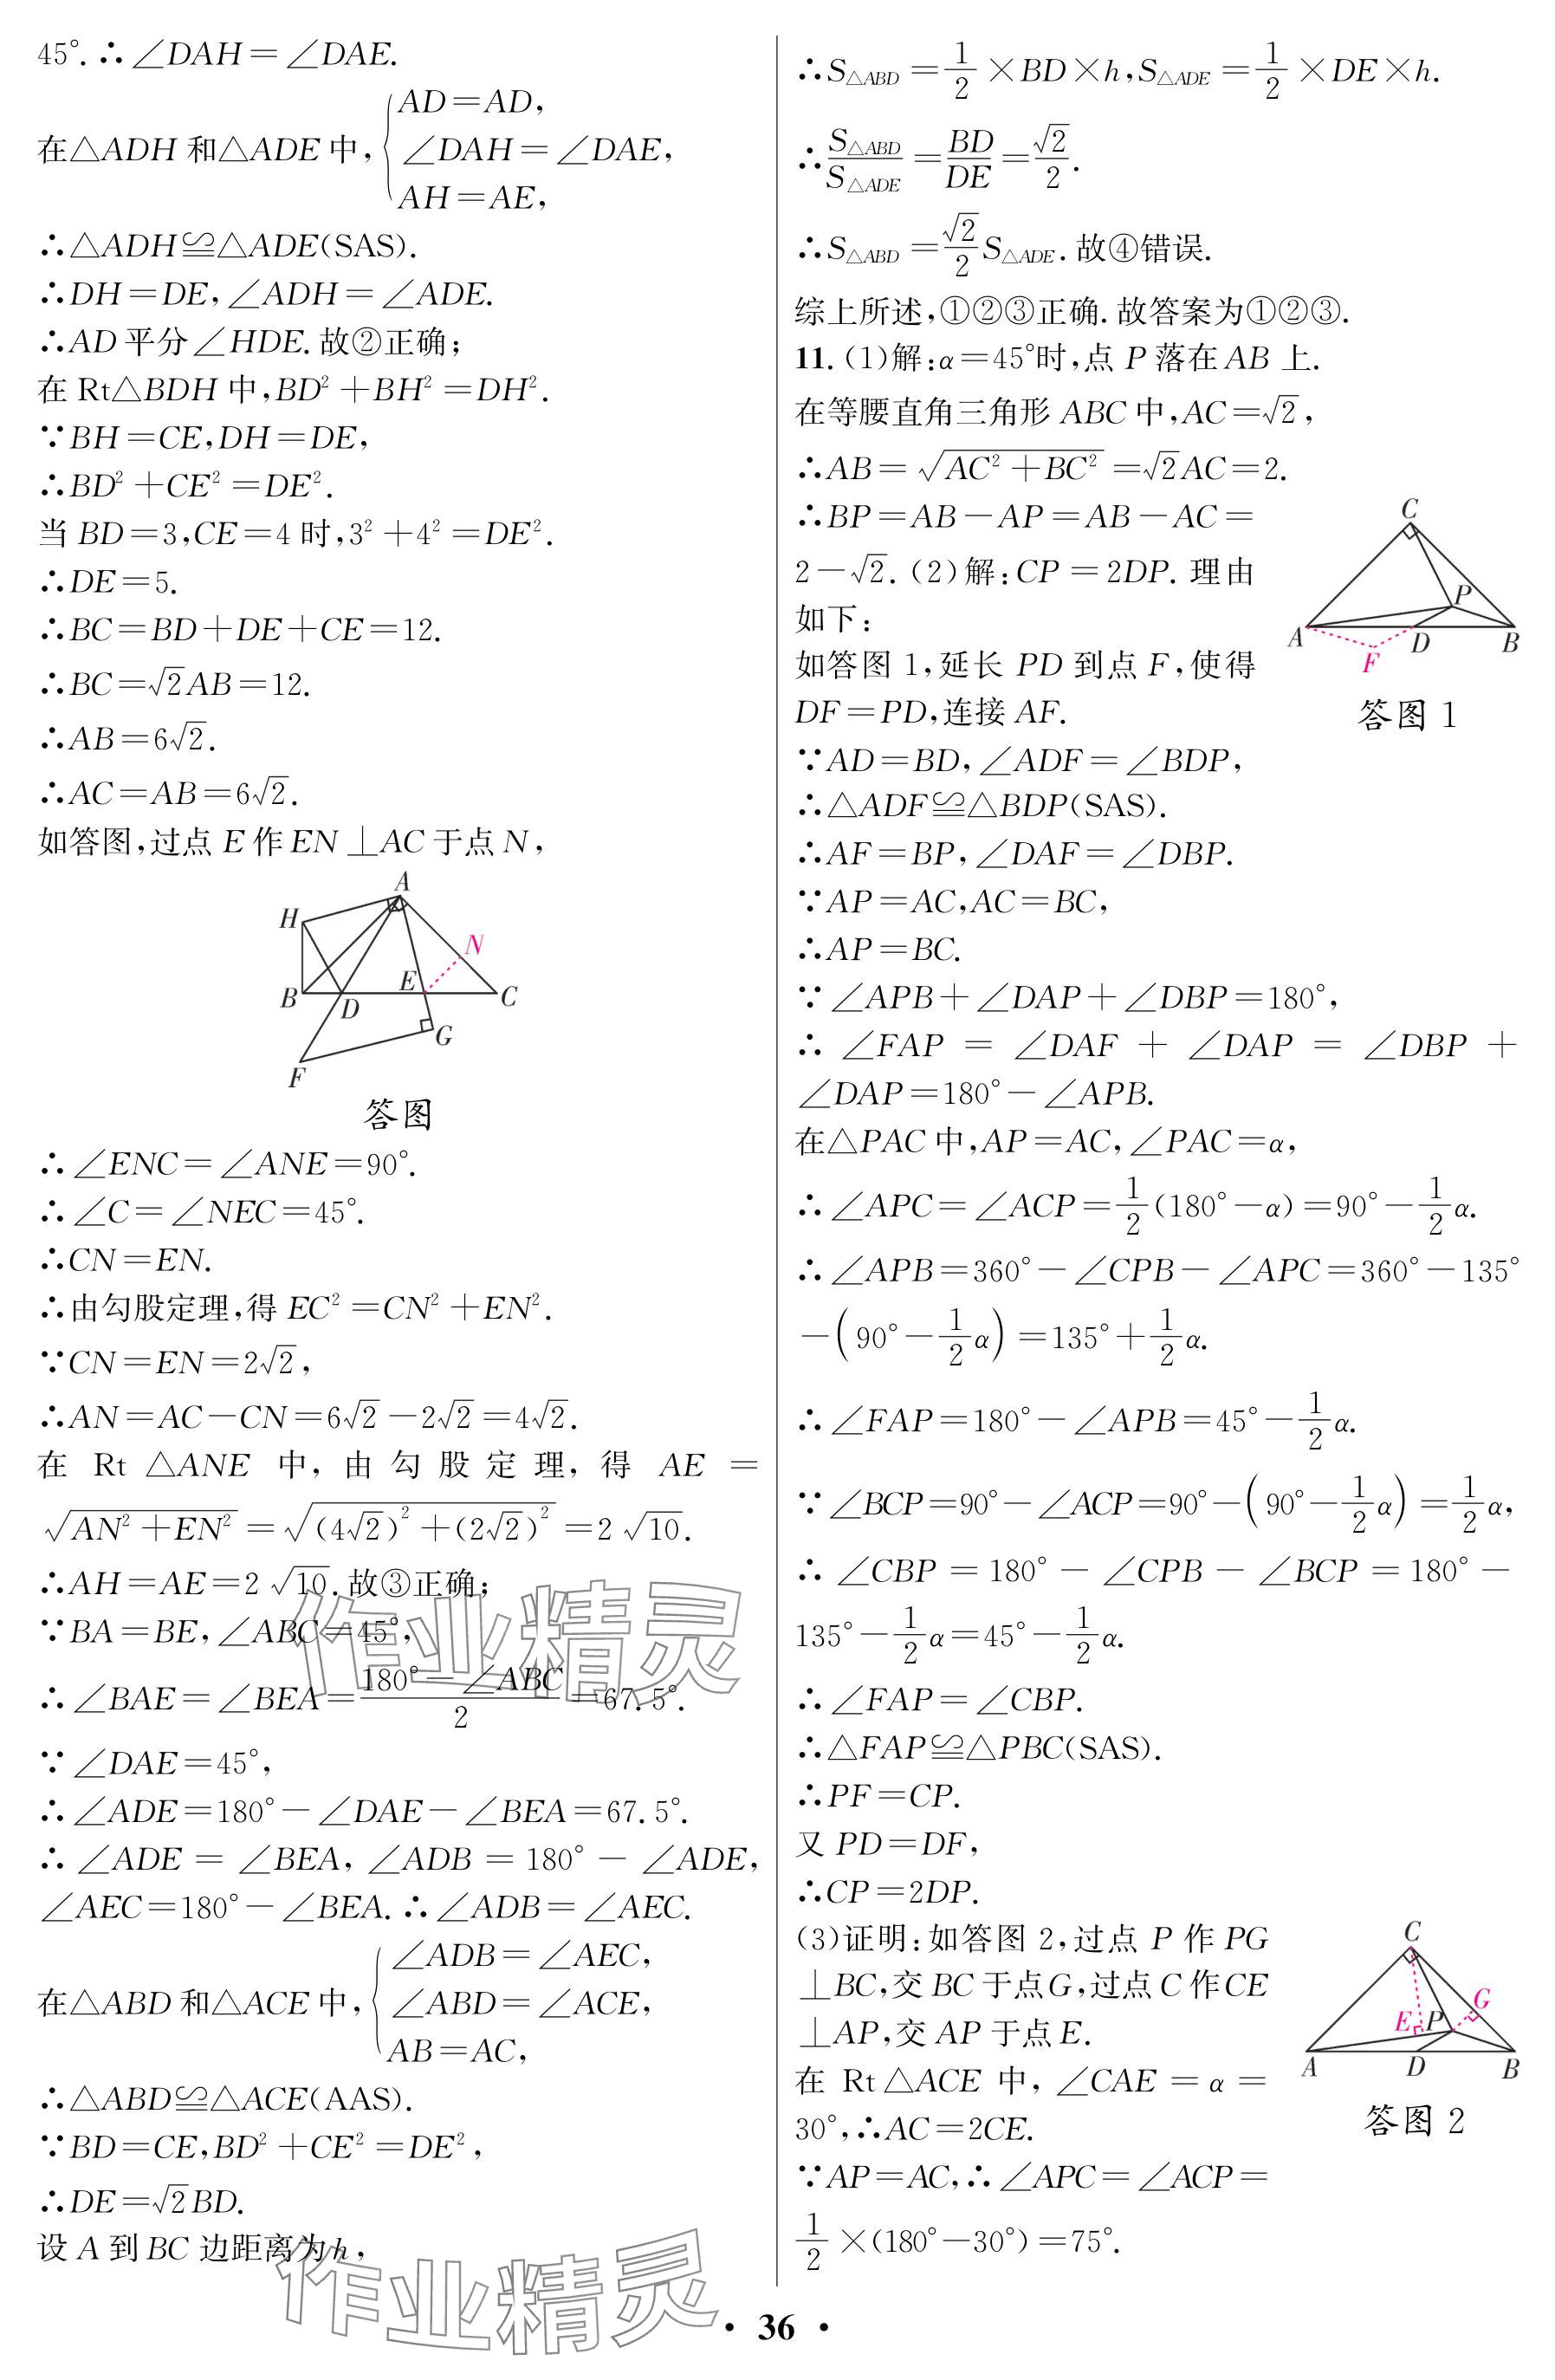 45°.∴∠DAH=∠DAE.
在△ADH和△ADE中,{AD=AD,
∠DAH=∠DAE,
AH=AE,
∴△ADH≌△ADE(SAS).
∴DH=DE,∠ADH=∠ADE.
∴AD平分∠HDE.故②正确;
在Rt△BDH中,BD²+BH²=DH².
∵BH=CE,DH=DE,
∴BD²+CE²=DE².
当BD=3,CE=4时,3²+4²=DE².
∴DE=5.
∴BC=BD+DE+CE=12.
∴BC=√2AB=12.
∴AB=6√2.
∴AC=AB=6√2.
如答图,过点E作EN⊥AC于点N,
A
H
N
B
D
E
C
G
F
答图
∴∠ENC=∠ANE=90°.
∴∠C=∠NEC=45°.
∴CN=EN.
∴由勾股定理,得EC²=CN²+EN².
∵CN=EN=2√2,
∴AN=AC-CN=6√2-2√2=4√2.
在Rt△ANE中,由勾股定理,得AE=
√(AN²+EN²)=√((4√2)²+(2√2)²)=2√10.
∴AH=AE=2√10.故③正确;
∵BA=BE,∠ABC=45°,
∴∠BAE=∠BEA=(180°-∠ABC)/2=67.5°.
∵∠DAE=45°,
∴∠ADE=180°-∠DAE-∠BEA=67.5°.
∴∠ADE=∠BEA,∠ADB=180°-∠ADE,
∠AEC=180°-∠BEA.∴∠ADB=∠AEC.
在△ABD和△ACE中,{∠ADB=∠AEC,
∠ABD=∠ACE,
AB=AC,
∴△ABD≌△ACE(AAS).
∵BD=CE,BD²+CE²=DE²,
∴DE=√2BD.
设A到BC边距离为h,
∴S△ABD=1/2×BD×h,S△ADE=1/2×DE×h.
∴S△ABD/S△ADE=BD/DE=√2/2.
∴S△ABD=√2/2S△ADE.故④错误.
综上所述,①②③正确.故答案为①②③.
11.(1)解:α=45°时,点P落在AB上.
在等腰直角三角形ABC中,AC=√2,
∴AB=√(AC²+BC²)=√2AC=2.
∴BP=AB-AP=AB-AC=
2-√2.(2)解:CP=2DP.理由
如下:
如答图1,延长PD到点F,使得
DF=PD,连接AF.
C
P
A
D
B
F
答图1
∵AD=BD,∠ADF=∠BDP,
∴△ADF≌△BDP(SAS).
∴AF=BP,∠DAF=∠DBP.
∵AP=AC,AC=BC,
∴AP=BC.
∵∠APB+∠DAP+∠DBP=180°,
∴∠FAP=∠DAF+∠DAP=∠DBP+
∠DAP=180°-∠APB.
在△PAC中,AP=AC,∠PAC=α,
∴∠APC=∠ACP=1/2(180°-α)=90°-1/2α.
∴∠APB=360°-∠CPB-∠APC=360°-135°
-(90°-1/2α)=135°+1/2α.
∴∠FAP=180°-∠APB=45°-1/2α.
∵∠BCP=90°-∠ACP=90°-(90°-1/2α)=1/2α,
∴∠CBP=180°-∠CPB-∠BCP=180°-
135°-1/2α=45°-1/2α.
∴∠FAP=∠CBP.
∴△FAP≌△PBC(SAS).
∴PF=CP.
又PD=DF,
∴CP=2DP.
(3)证明:如答图2,过点P作PG
⊥BC,交BC于点G,过点C作CE
⊥AP,交AP于点E.
在Rt△ACE中,∠CAE=α=
30°,∴AC=2CE.
C
G
E
P
A
D
B
答图2
∵AP=AC,∴∠APC=∠ACP=
1/2×(180°-30°)=75°.
作业精灵
作业精灵
·36·